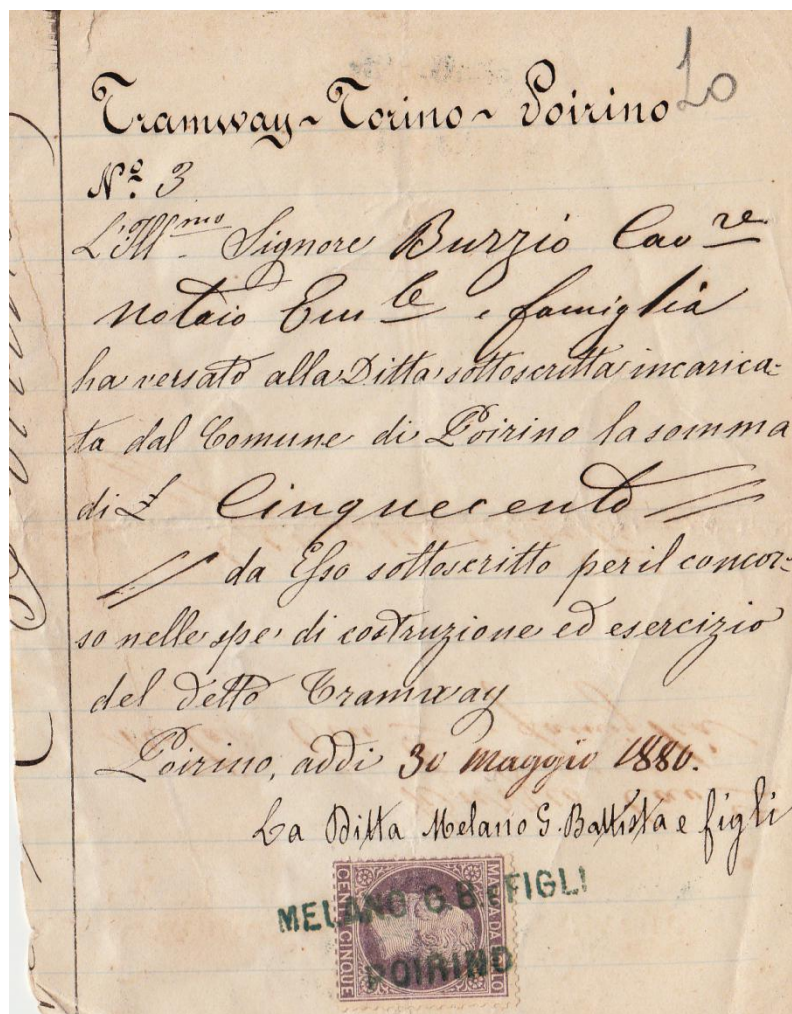 10
Tramway~Torino~Poirino
Nº. 3
L'Ill.mo Signore Burzio Cavre
notaio Emle e famiglia
ha versato alla Ditta sottoscritta incarica-
ta dal Comune di Poirino la somma
di £ Cinquecento //
// da Esso sottoscritto per il concor-
so nelle spe di costruzione ed esercizio
del detto Tramway
Poirino, addi 30 Maggio 1880.
La Ditta Melano G. Battista e figli
MELANO G.B. e FIGLI
POIRINO
CENTI CINQUE
MARCA DA BOLLO